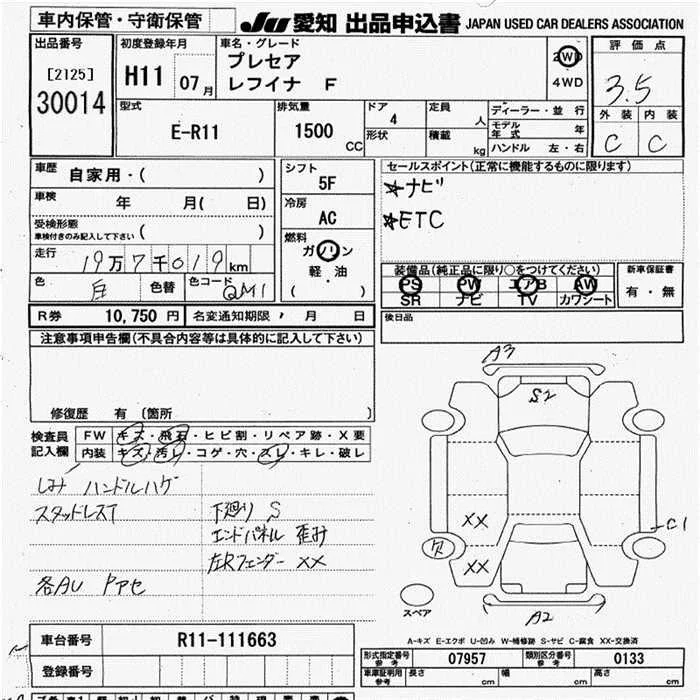 車内保管・守衛保管
JU 愛知 出品申込書 JAPAN USED CAR DEALERS ASSOCIATION
出品番号
[2125]
30014
初度登録年月
H11 07月
車名・グレード
プレセア
レフィナ F
2WD
4WD
評価点
3.5
外装 内装
C C
型式
E-R11
排気量
1500 CC
ドア
4
形状
定員
人
積載
kg
ディーラー・並行
モデル年式 年
ハンドル 左・右
車歴
自家用・( )
車検
年 月( 日)
受検形態
車検付きのみ記入して下さい ( )
走行
19万7千019km
色 白 色替 色コード QM1
シフト
5F
冷房
AC
燃料
ガソリン
軽・油
( )
セールスポイント(正常に機能するものに限ります)
☆ナビ
☆ETC
装備品(純正品に限り○をつけてください)
PS PW エアB AW
SR ナビ TV カワシート
新車保証書
有・無
R券 10,750円 名変通知期限 月 日
後日品
注意事項申告欄(不具合内容等は具体的に記入して下さい)
修復歴 有 〔箇所 〕
検査員記入欄
FW キズ・飛石・ヒビ割・リペア跡・X要
内装 キズ・汚レ・コゲ・穴・スレ・キレ・破レ
しみ ハンドルハゲ
スタッドレスT
下廻り S
エンドパネル 歪み
左Rフェンダー XX
各AU Pアセ
A3
S2
XX
XX
欠
C1
A2
スペア
A-キズ E-エクボ U-凹み W-補修跡 S-サビ C-腐食 XX-交換済
車台番号 R11-111663
登録番号
形式指定番号 参考 07957 類別区分番号 参考 0133
車庫証明用 参考 長さ cm 幅 cm 高さ cm